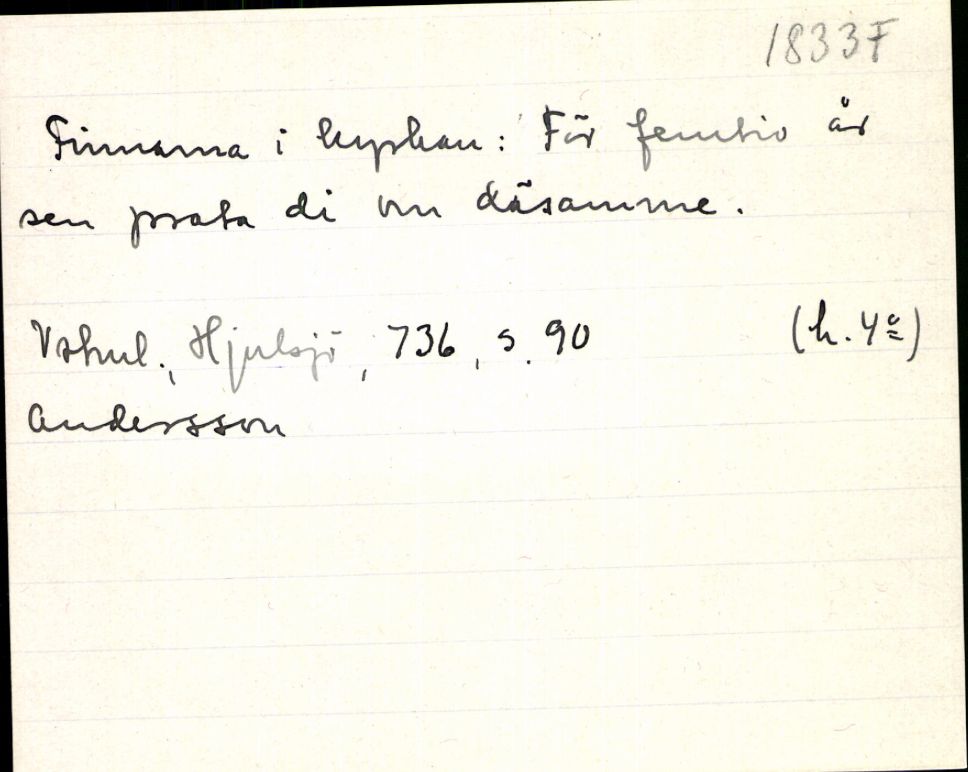 1833F
Finnarna i kyrkan: För femtio år
sen prata di om däsamme.
Vskul., Hjulsjö, 736, s. 90 (h. 4º)
Andersson